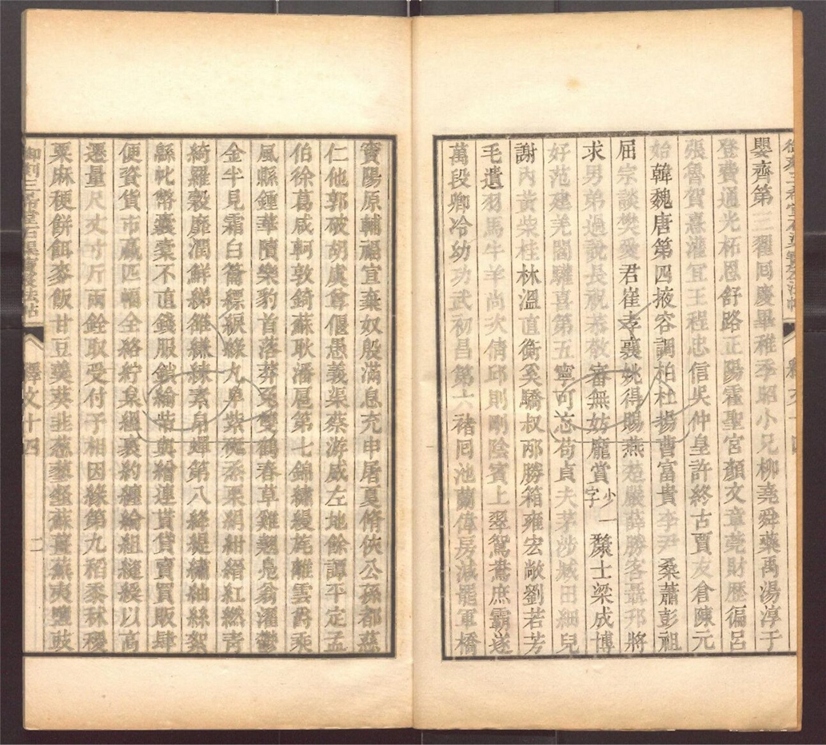 嬰齊第三翟回慶畢稚季昭小兄柳堯舜藥禹湯淳于
登費通光柘恩舒路正陽霍聖宮顏文章莞財歷徧呂
張魯賀憙灌宜王程忠信吳仲皇許終古賈友倉陳元
始韓魏唐第四掖容調柏杜揚曹富貴李尹桑蕭彭祖
屈宗談樊愛君崔孝襄姚得賜燕楚嚴薛勝客聶邗將
求男弟過說長祝恭敬審無妨龐賞少一字贅士梁成博
好范建羌閻驩喜第五寧可忘苟貞夫茅涉臧田細兒
謝內黃柴桂林溫直衡奚驕叔邴勝箱雍宏敞劉若芳
毛遺羽馬牛羊尚次倩邱則剛陰賓上翠鴛鴦庶霸遂
萬段卿冷幼功武初昌第六褚回池蘭偉房減罷軍橋
竇陽原輔福宜棄奴殷滿息充申屠夏脩俠公孫都慈
仁他郭破胡虞尊偃愚義渠蔡游威左地餘譚平定孟
伯徐葛咸軻敦錡蘇耿潘扈第七錦繡縵旄離雲爵乘
風縣鍾華隤樂豹首落莽兔雙鶴春草雞翹鳧翁濯鬱
金半見霜白籥縹綟綠丸皁紫硟烝栗絹紺縉紅燃青
綺羅縠靡潤鮮綈雒縑練素帛蟬第八絳緹繡紬絲絮
縣枇幣囊橐不直錢服鎖緰幣與繒連貰貸賣買販肆
便資貨市贏匹幅全絡紵枲縕裹約纏綸組縌綬以高
遷量尺丈寸斤兩銓取受付予相因緣第九稻黍秫稷
粟麻稉餅餌麥飯甘豆羹葵韭蔥蓼韰蘇薑蕪荑鹽豉
御刻三希堂石渠寶笈法帖 釋文十四 二